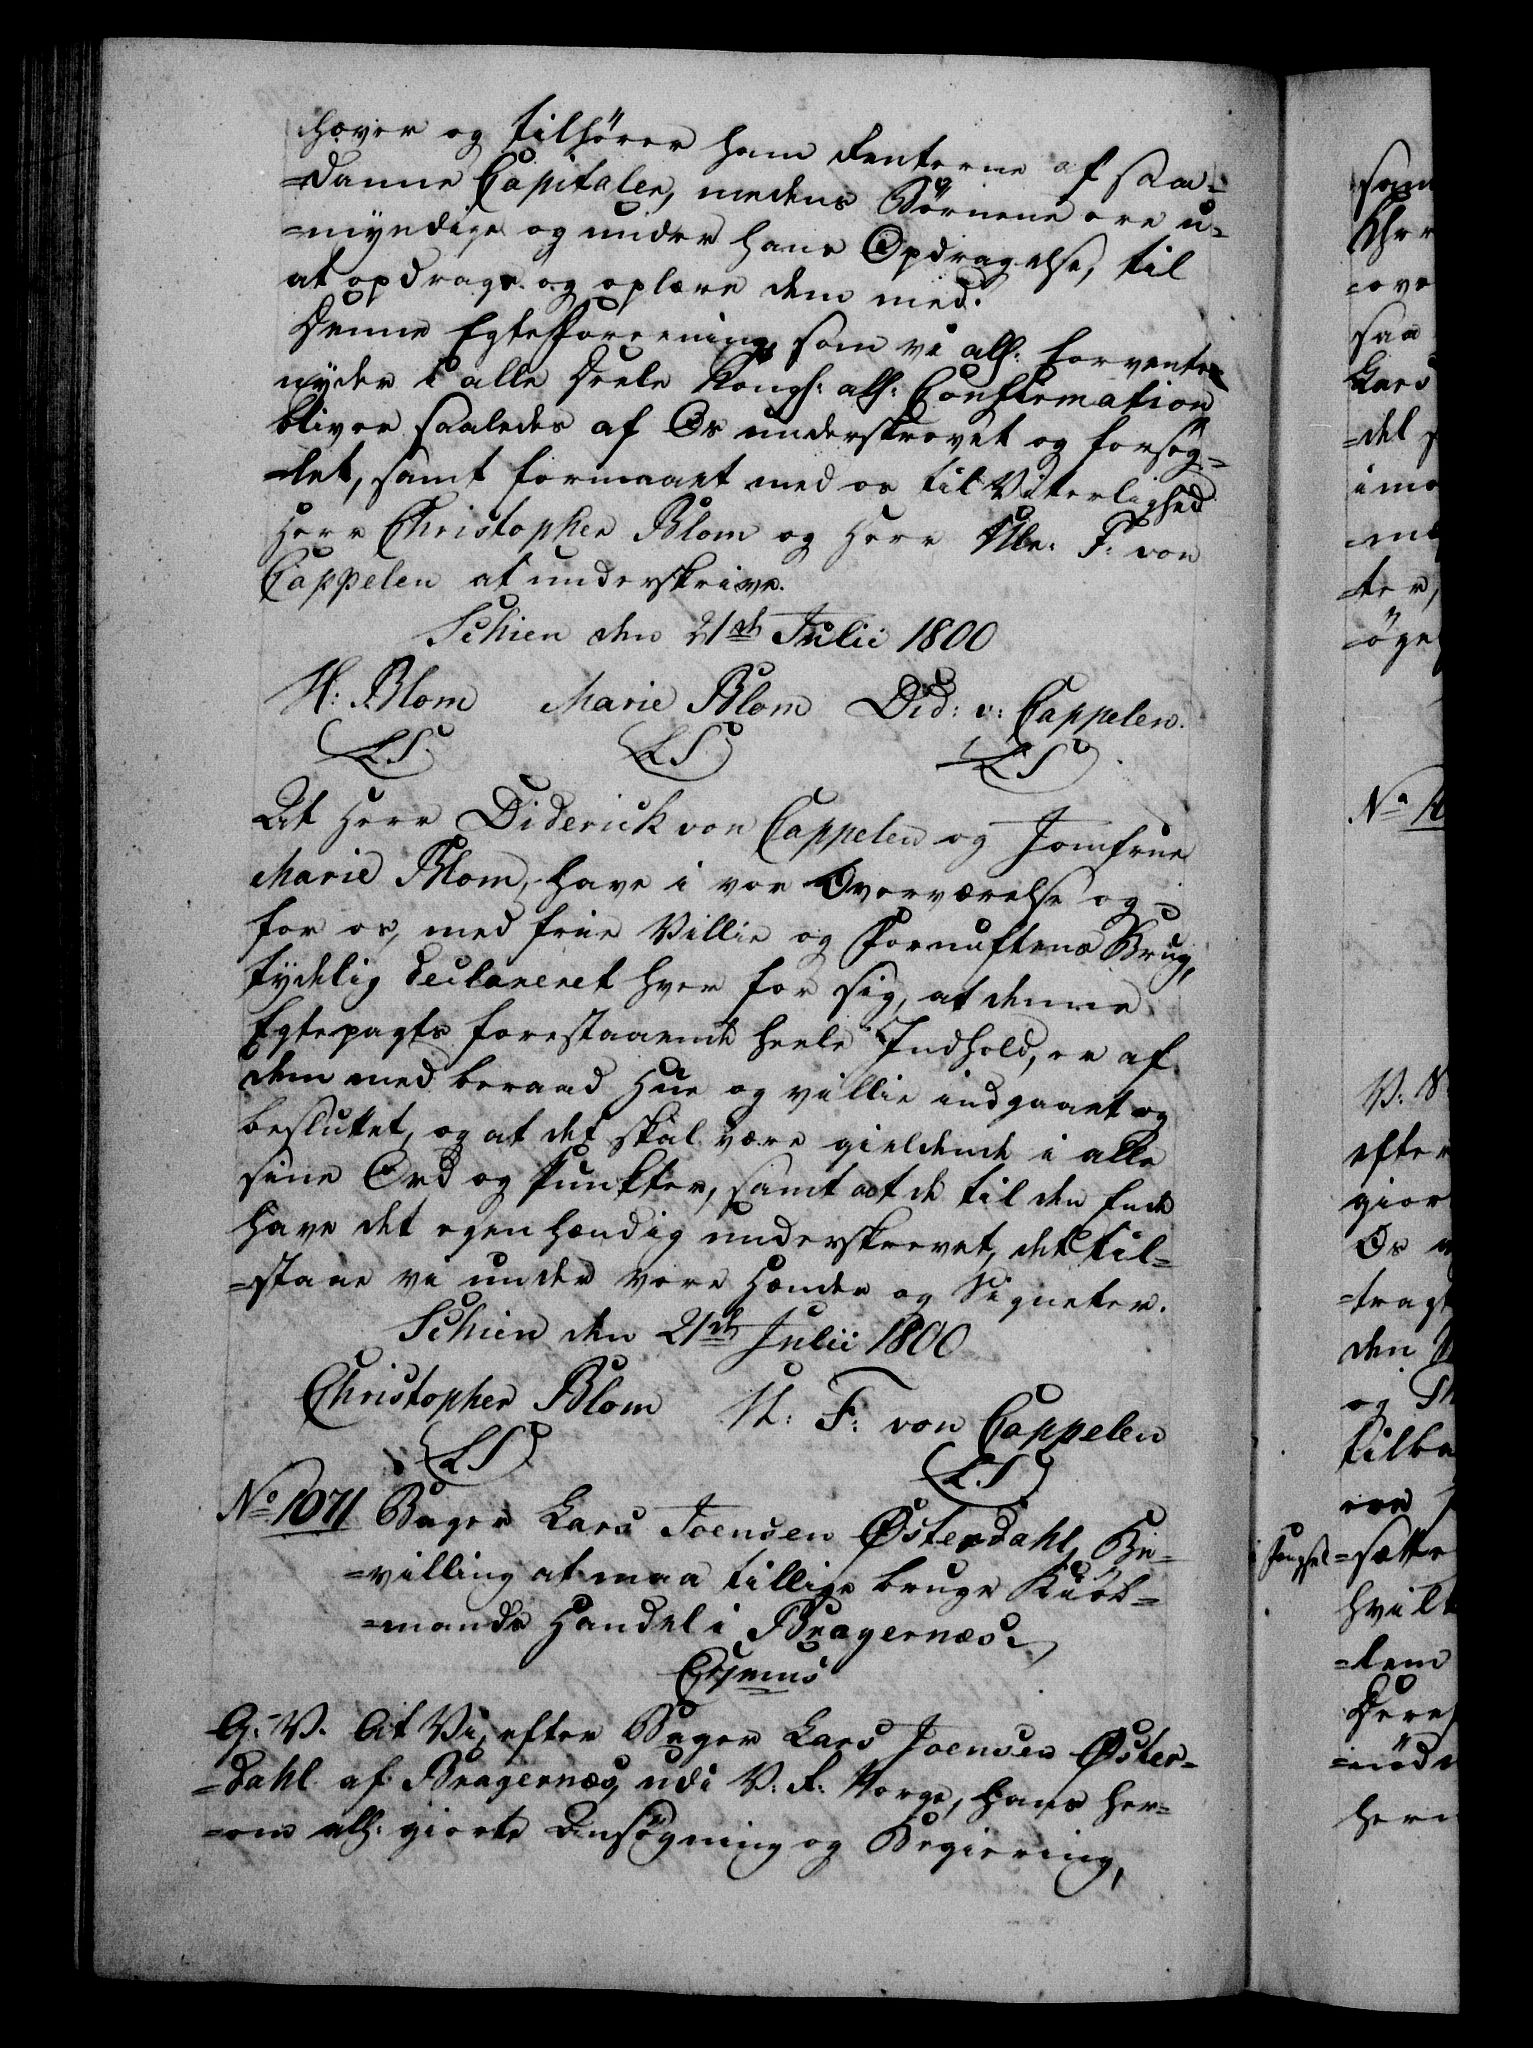 hæver og tilhører ham Renterne af saa-
=danne Capitaler, medens Børnene ere u-
=myndige og under hans Opdragelse, til
at opdrage og oplære dem med.
Denne Egteforeening, som vi all: forvente
nyder i alle Deele Kongl: all: Confirmation
bliver saaledes af Os underskrevet og forseg-
=let, samt formaaet med os til Vitterlighed
Herr Christopher Blom og Herr Ulr: F: von
Cappelen at underskrive.
Schien den 21de Julii 1800
H: Blom Marie Blom Did: v: Cappelen.
LS. LS LS
At Herr Diderick von Cappelen og Jomfrue
Marie Blom, have i vor Overværelse og
for os, med frie Villie og Fornuftens Brug,
tydelig declareret hver for sig, at denne
Egtepagts forestaaende heele Indhold, er af
dem med beraad Hue og villie indgaaet og
besluttet, og at det skal være gieldende i alle
sine Ord og Puncter, samt at de til den Ende
have det egenhændig underskrevet, det til-
=staae vi under vore Hænder og Signeter.
Schien den 21de Julii 1800
Christopher Blom U: F: von Cappelen
LS L.S
No 1071 Bager Lars Joensen Østerdahl, Be-
=villing at maa tillige bruge Kiøb-
=mands Handel i Bragernæs.
C: 7mus
G: V. At Vi, efter Bager Lars Joensen Øster-
=dahl af Bragernæs, udi V: R: Norge, hans her-
=om all: giorte Ansøgning og Begiering,